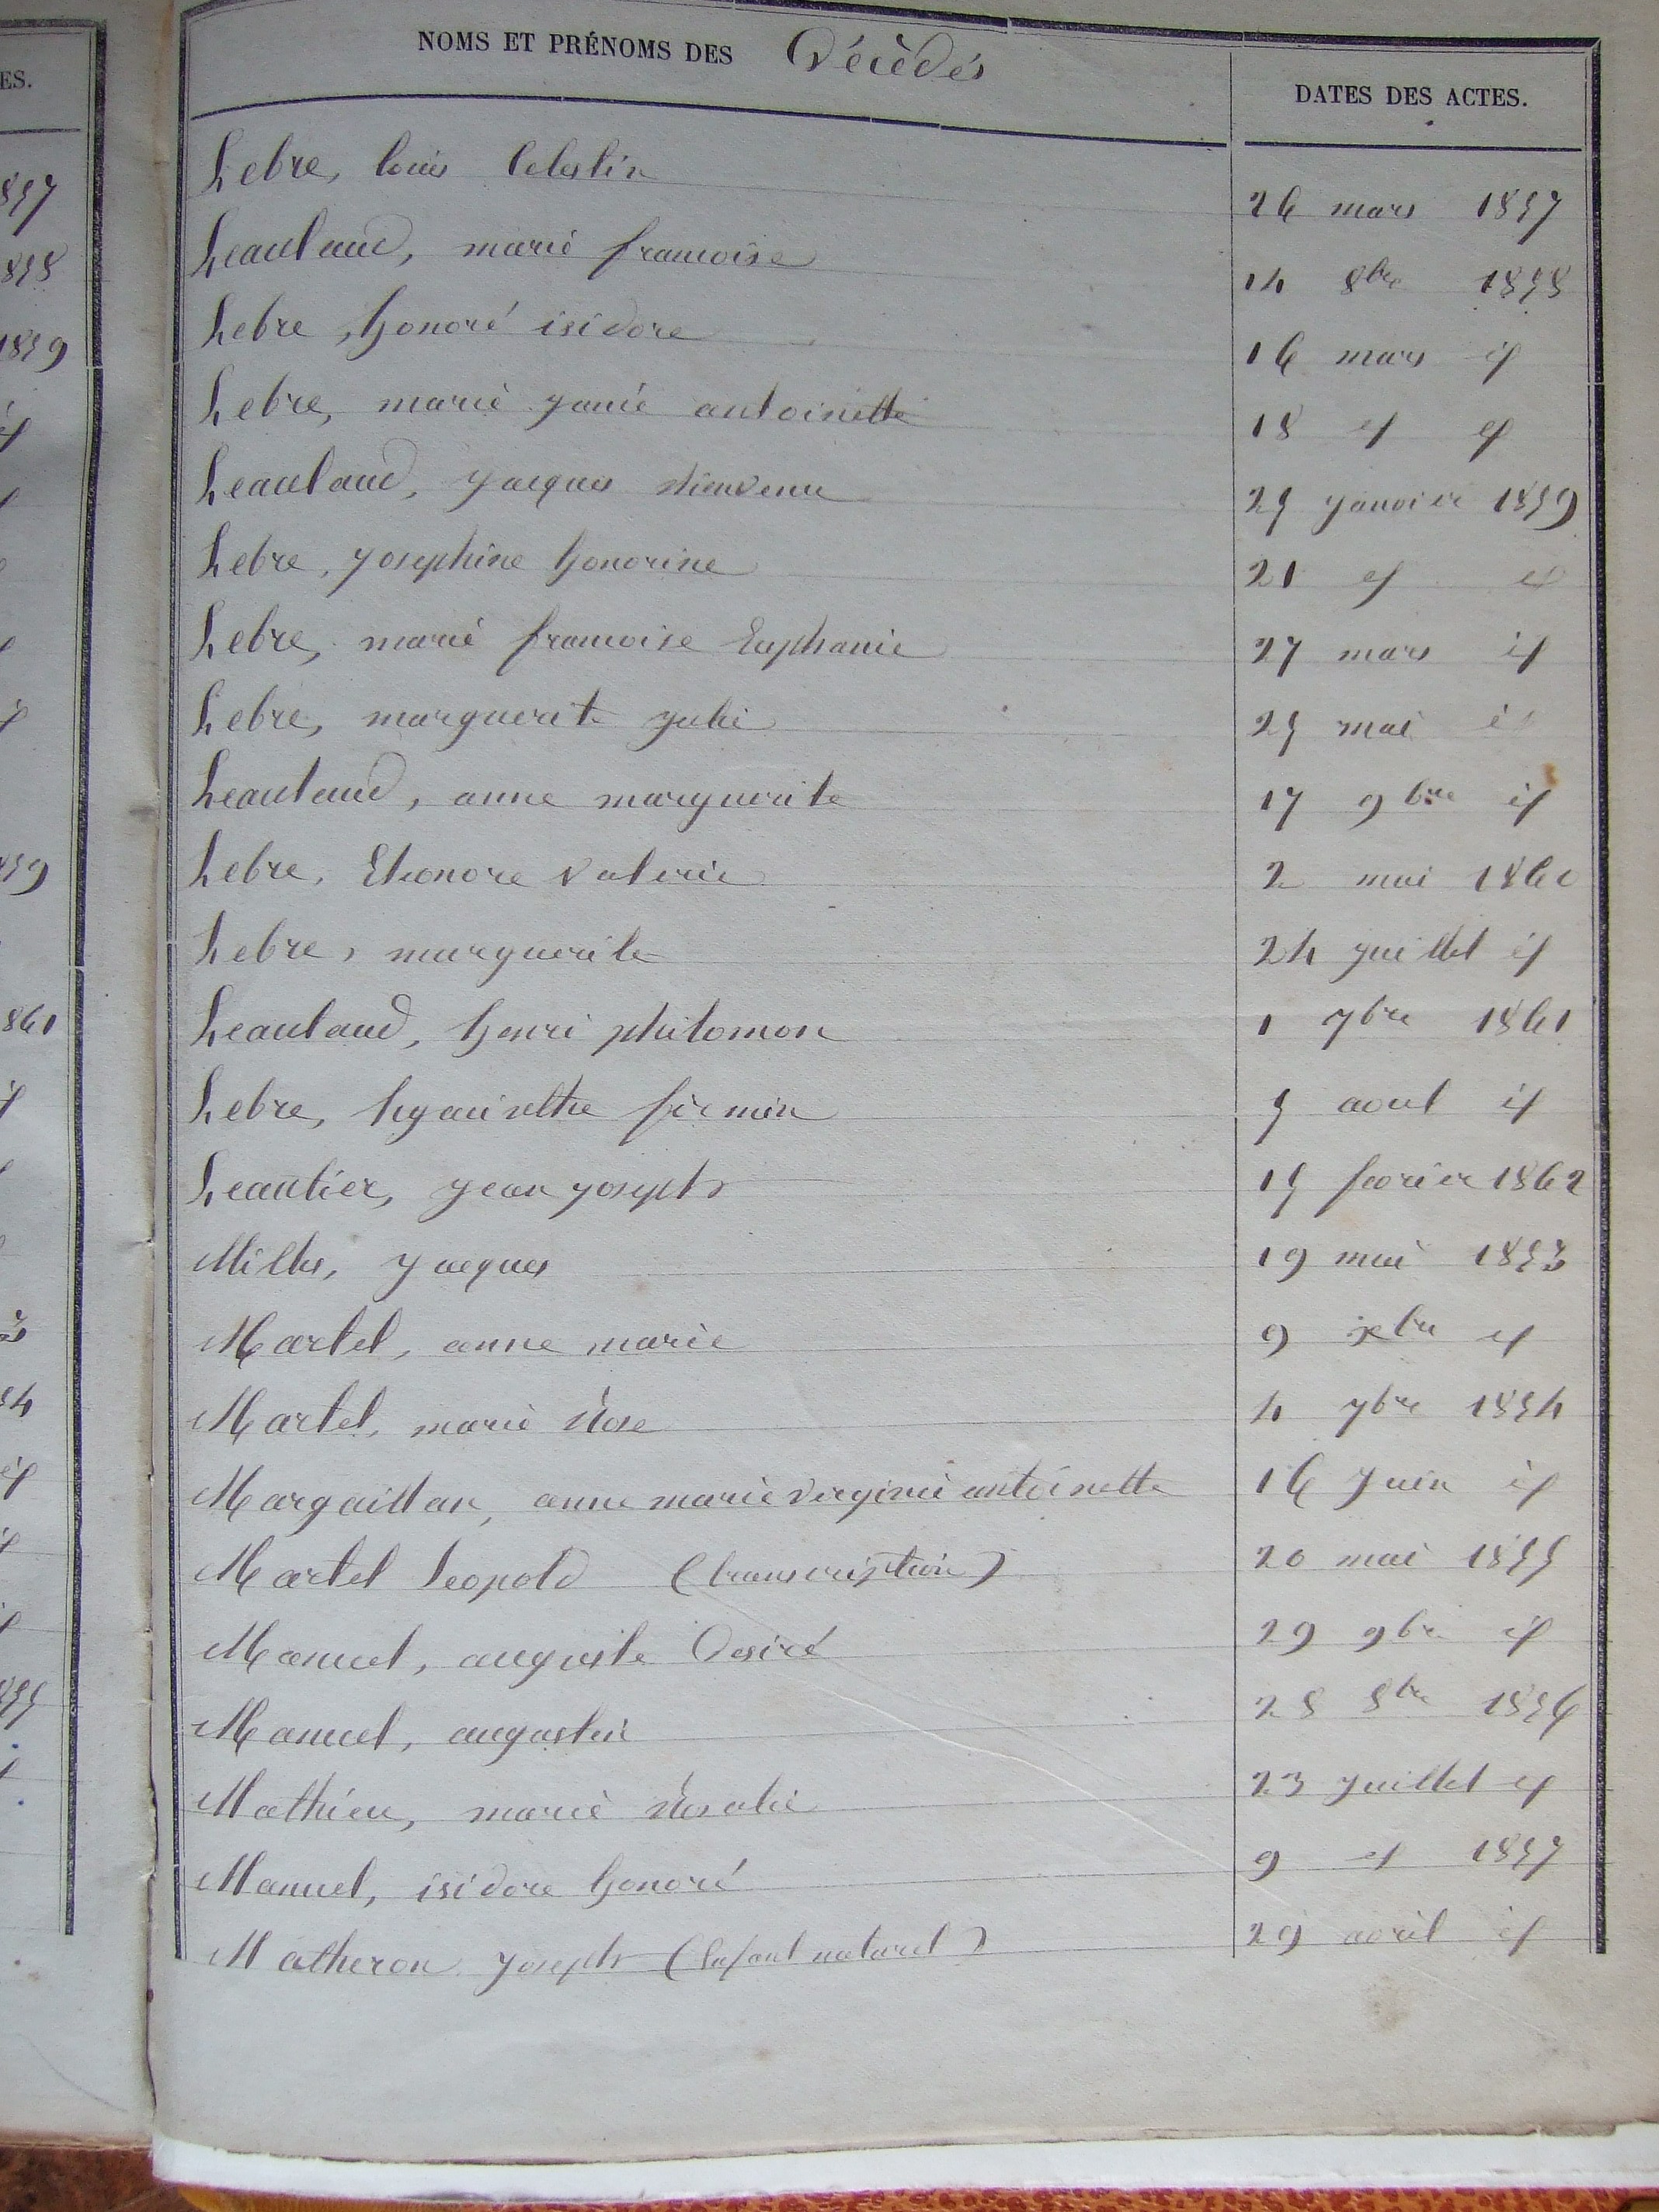 ES.
NOMS ET PRÉNOMS DES Décèdés
DATES DES ACTES.
Lebre, louis Celestin 26 mars 1857
Leautaud, marie francoise 14 8bre 1858
Lebre, honoré isidore 16 mars id
Lebre, marie janie antoinette 18 id id
Leautaud, jacques bienvenu 25 janvier 1859
Lebre, josephine honorine 21 id id
Lebre, marie francoise Euphanie 27 mars id
Lebre, marguerite julie 25 mai id
Leautaud, anne marguerite 17 9bre id
Lebre, Eleonore valerie 2 mai 1860
Lebre, marguerite 24 juillet id
Leautaud, henri philomon 1 7bre 1861
Lebre, hyacinthe firmin 5 aout id
Leautier, jean joseph 15 fevrier 1862
Milles, jacques 19 mai 1853
Martel, anne marie 9 xbre id
Martel, marie rose 4 7bre 1854
Margaillan, anne marie virginie antoinette 16 juin id
Martel Leopold (transcription) 20 mai 1855
Manuel, auguste Desiré 29 9bre id
Manuel, augustin 28 8bre 1856
Mathieu, marie rosalie 23 juillet id
Manuel, isidore honoré 9 id 1857
Matheron joseph (Enfant naturel) 29 avril id